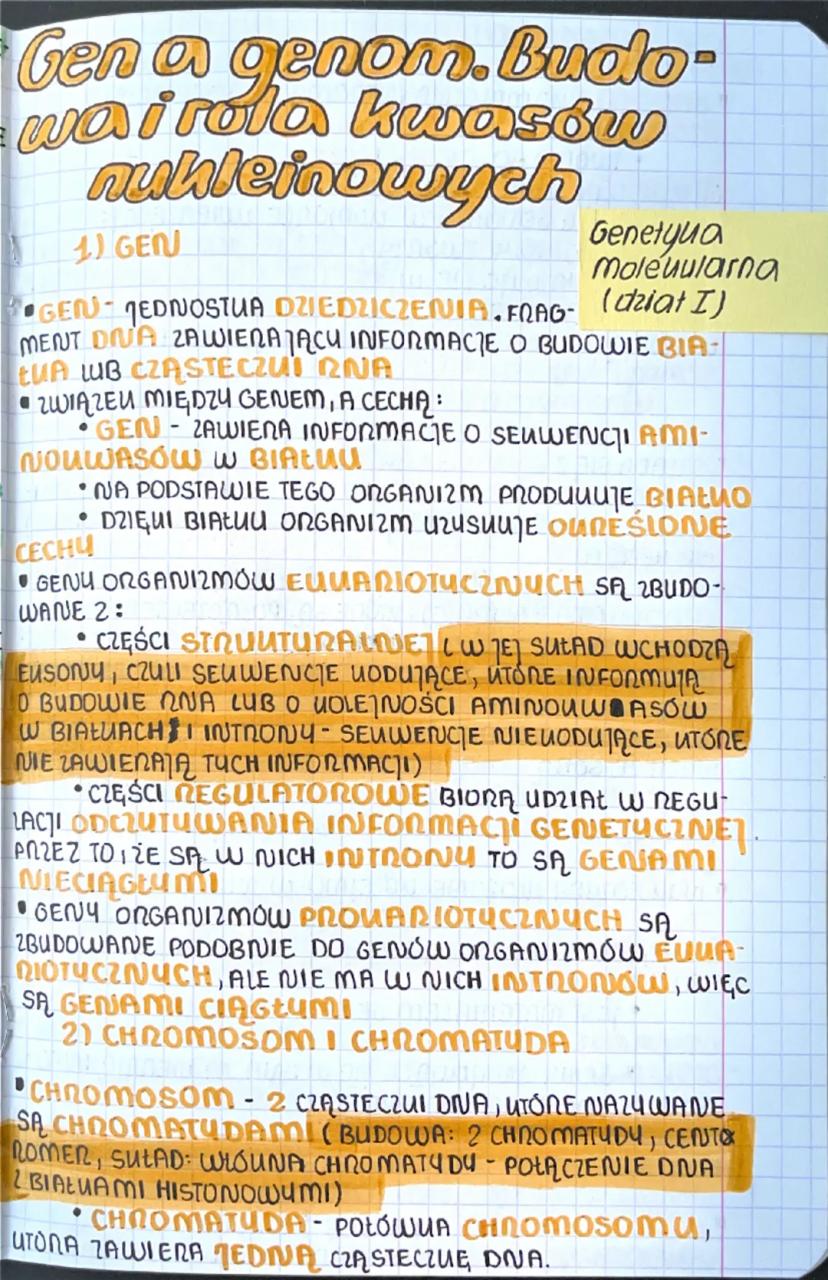 Gen a genom. Budo-
wa i rola kwasów
nukleinowych
Genetyka
molekularna
(dział I)
1) GEN
▪ GEN - JEDNOSTKA DZIEDZICZENIA. FRAG-
MENT DNA ZAWIERAJĄCY INFORMACJE O BUDOWIE BIA-
ŁKA LUB CZĄSTECZKI RNA
▪ ZWIĄZEK MIĘDZY GENEM, A CECHĄ:
• GEN - ZAWIERA INFORMACJE O SEKWENCJI AMI-
NOKWASÓW W BIAŁKU
• NA PODSTAWIE TEGO ORGANIZM PRODUKUJE BIAŁKO
• DZIĘKI BIAŁKU ORGANIZM UZYSKUJE OKREŚLONE
CECHY
▪ GENY ORGANIZMÓW EUKARIOTYCZNYCH SĄ ZBUDO-
WANE Z:
• CZĘŚCI STRUKTURALNEJ (W JEJ SKŁAD WCHODZĄ
EKSONY, CZYLI SEKWENCJE KODUJĄCE, KTÓRE INFORMUJĄ
O BUDOWIE RNA LUB O KOLEJNOŚCI AMINOKWASÓW
W BIAŁKACH I INTRONY - SEKWENCJE NIEKODUJĄCE, KTÓRE
NIE ZAWIERAJĄ TYCH INFORMACJI)
• CZĘŚCI REGULATOROWE BIORĄ UDZIAŁ W REGU-
LACJI ODCZYTYWANIA INFORMACJI GENETYCZNEJ.
PRZEZ TO, ŻE SĄ W NICH INTRONY TO SĄ GENAMI
NIECIĄGŁYMI
▪ GENY ORGANIZMÓW PROKARIOTYCZNYCH SĄ
ZBUDOWANE PODOBNIE DO GENÓW ORGANIZMÓW EUKA-
RIOTYCZNYCH, ALE NIE MA W NICH INTRONÓW, WIĘC
SĄ GENAMI CIĄGŁYMI
2) CHROMOSOM I CHROMATYDA
▪ CHROMOSOM - 2 CZĄSTECZKI DNA, KTÓRE NAZYWANE
SĄ CHROMATYDAMI (BUDOWA: 2 CHROMATYDY, CENTO
ROMER, SKŁAD: WŁÓKNA CHROMATYDY - POŁĄCZENIE DNA
Z BIAŁKAMI HISTONOWYMI)
• CHROMATYDA - POŁÓWKA CHROMOSOMU,
KTÓRA ZAWIERA JEDNĄ CZĄSTECZKĘ DNA.